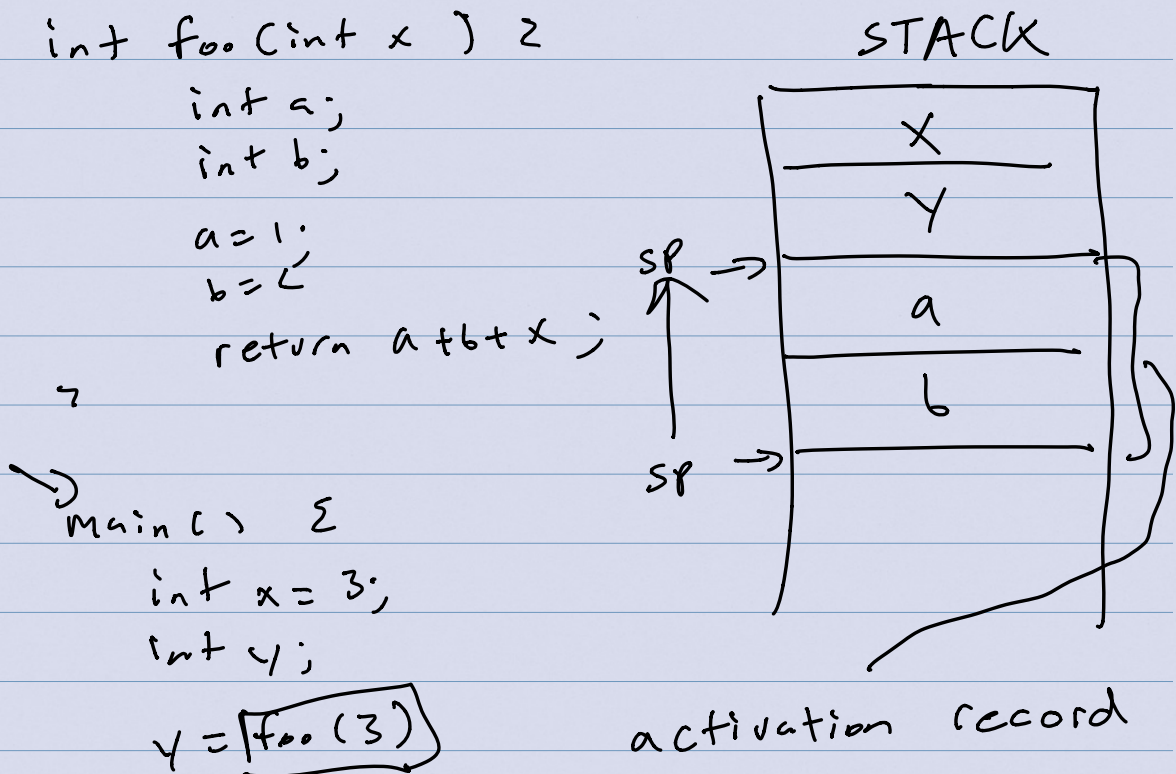 int foo (int x ) {
int a;
int b;
a = 1;
b = 2
return a + b + x ;
}
main ( ) {
int x = 3;
int y ;
y = foo (3)
STACK
X
Y
a
b
SP
SP
activation record